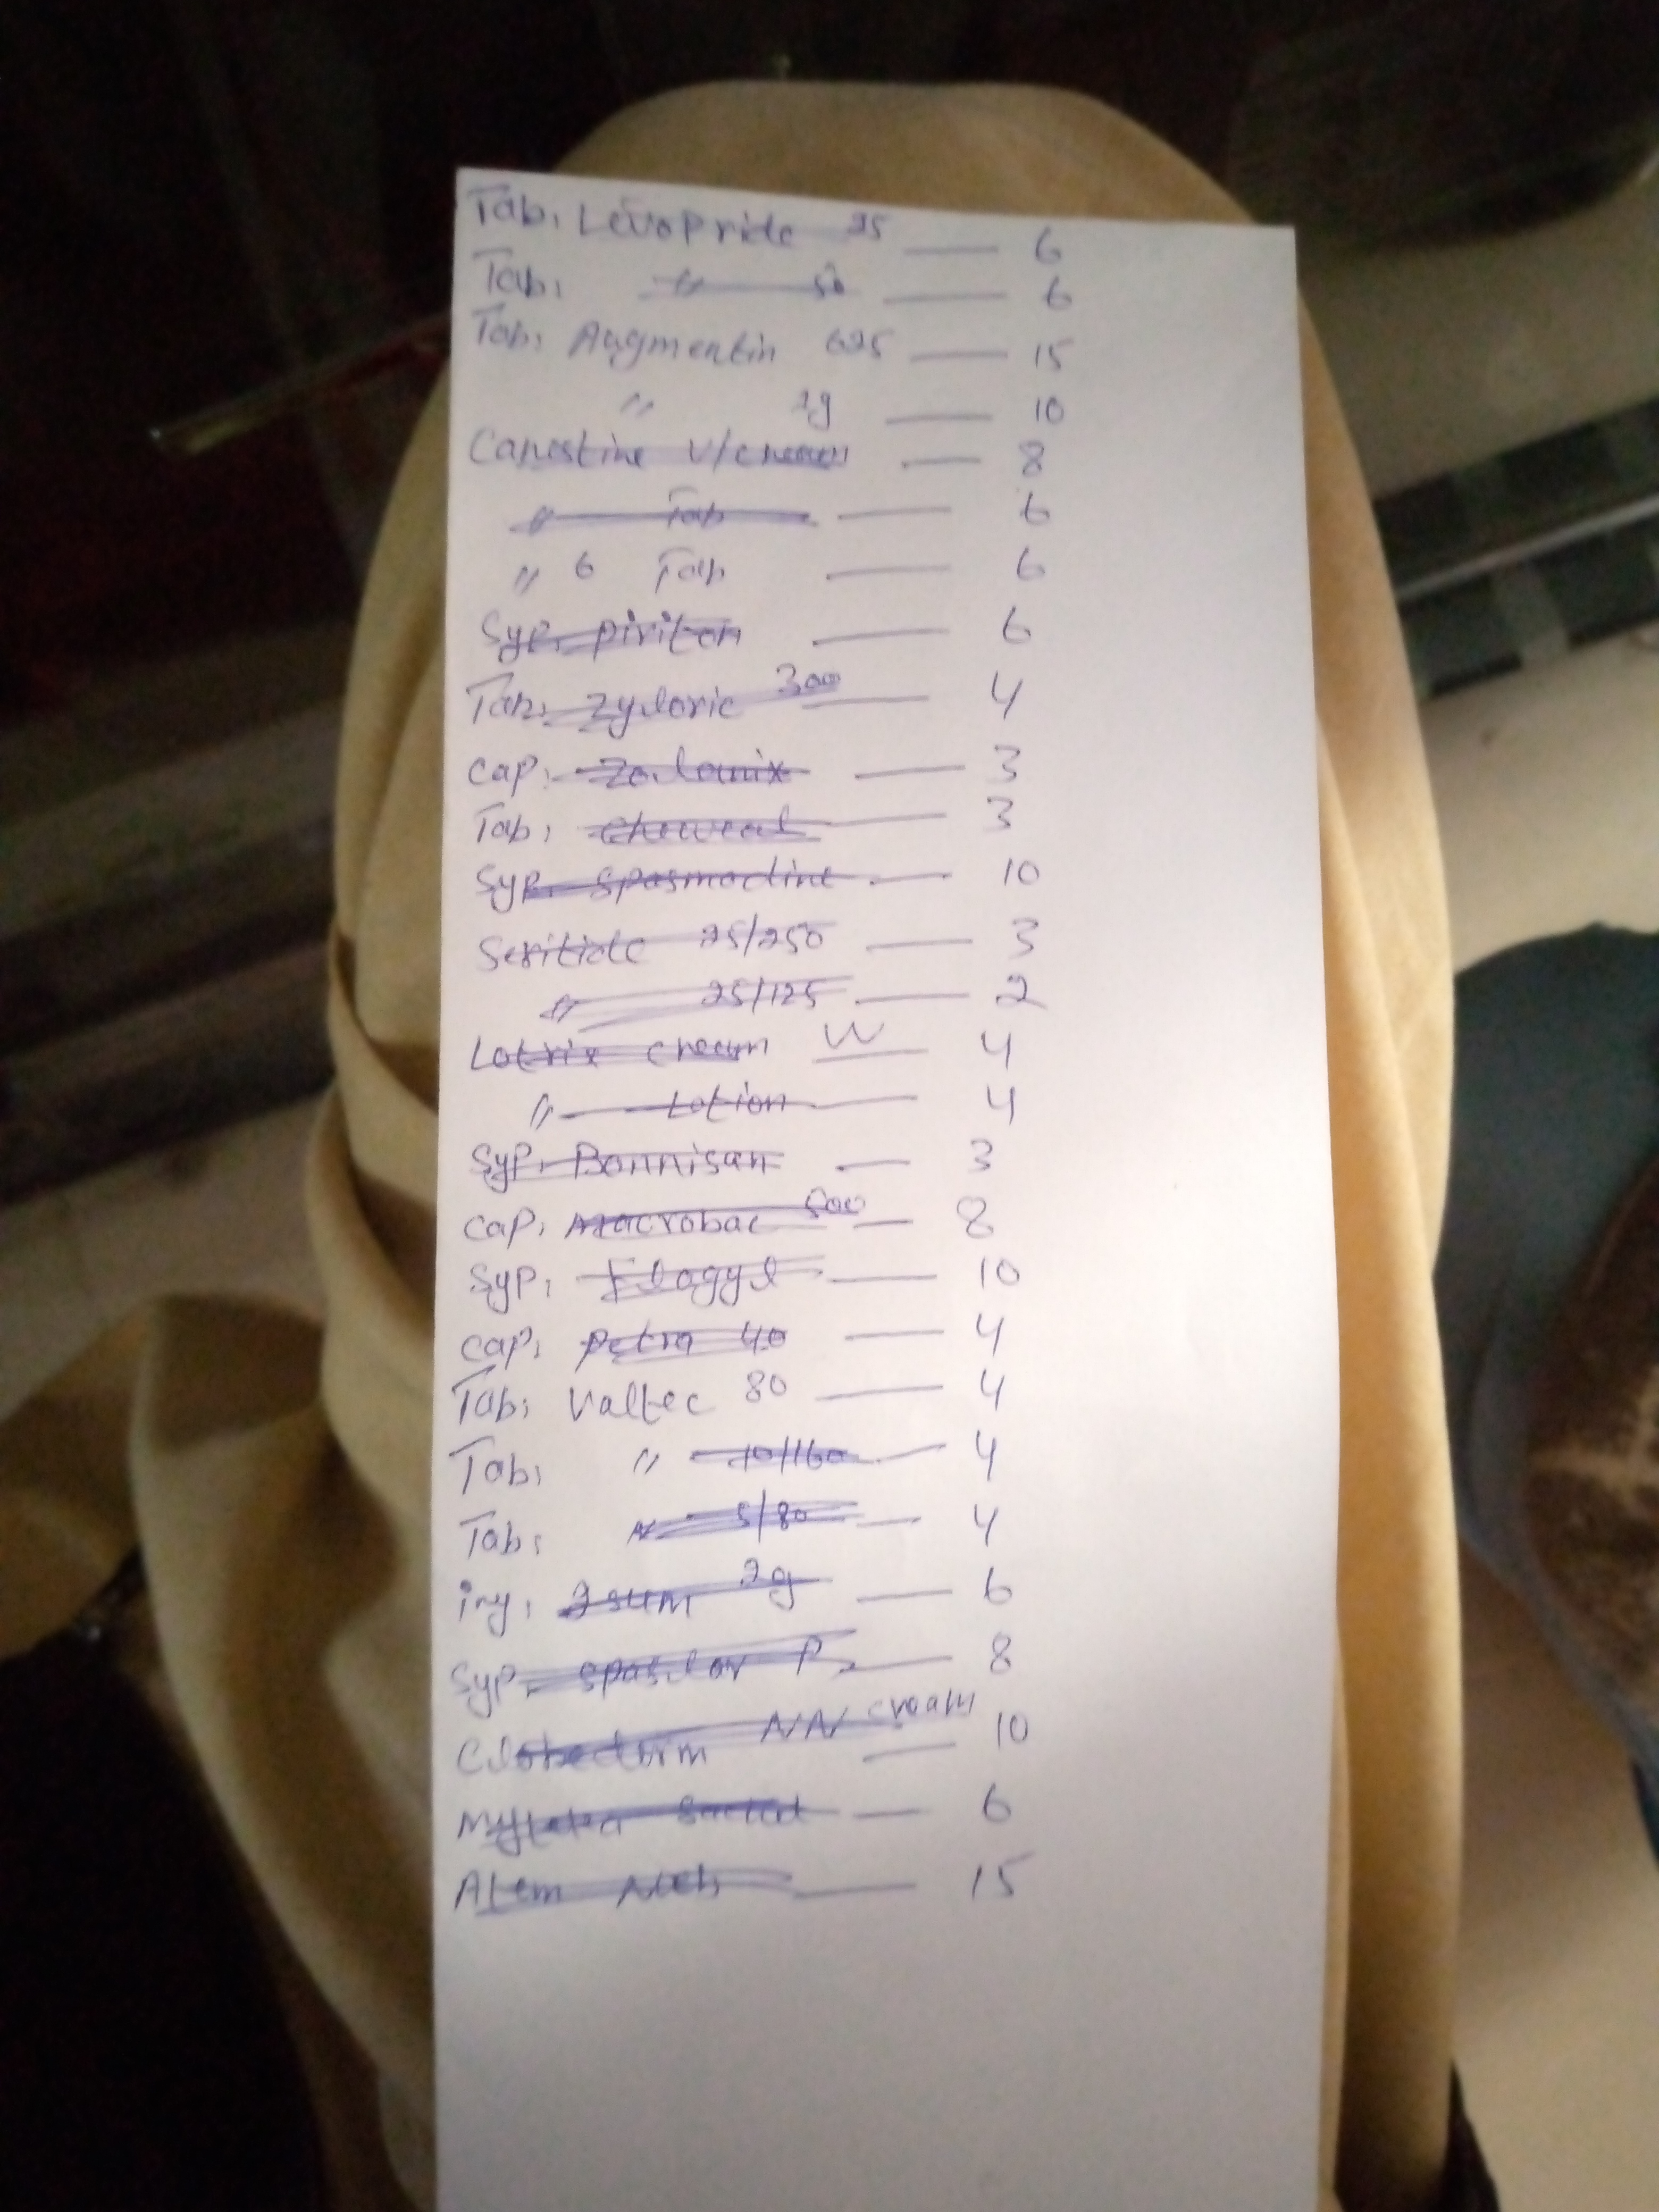 Tab: Levopride 25 — 6
Tab: 〃 50 — 6
Tab: Augmentin 625 — 15
〃 1g — 10
Canestine V/cream — 8
〃 Tab — 6
〃 6 Tab — 6
Syp. piriton — 6
Tab: Zyloric 300 — 4
Cap: — 3
Tab: — 3
Syp. Spasmodine — 10
Seritide 25/250 — 3
〃 25/125 — 2
Lotrix cream W — 4
〃 Lotion — 4
Syp. Bonnisan — 3
Cap: Macrobac 500 — 8
Syp: Flagyl — 10
Cap: 40 — 4
Tab: Valtec 80 — 4
Tab: 〃 10/160 — 4
Tab: 〃 5/80 — 4
inj: 2sum 2g — 6
Syp. Spasler P — 8
Clobederm NN cream — 10
— 6
Atem Neb — 15